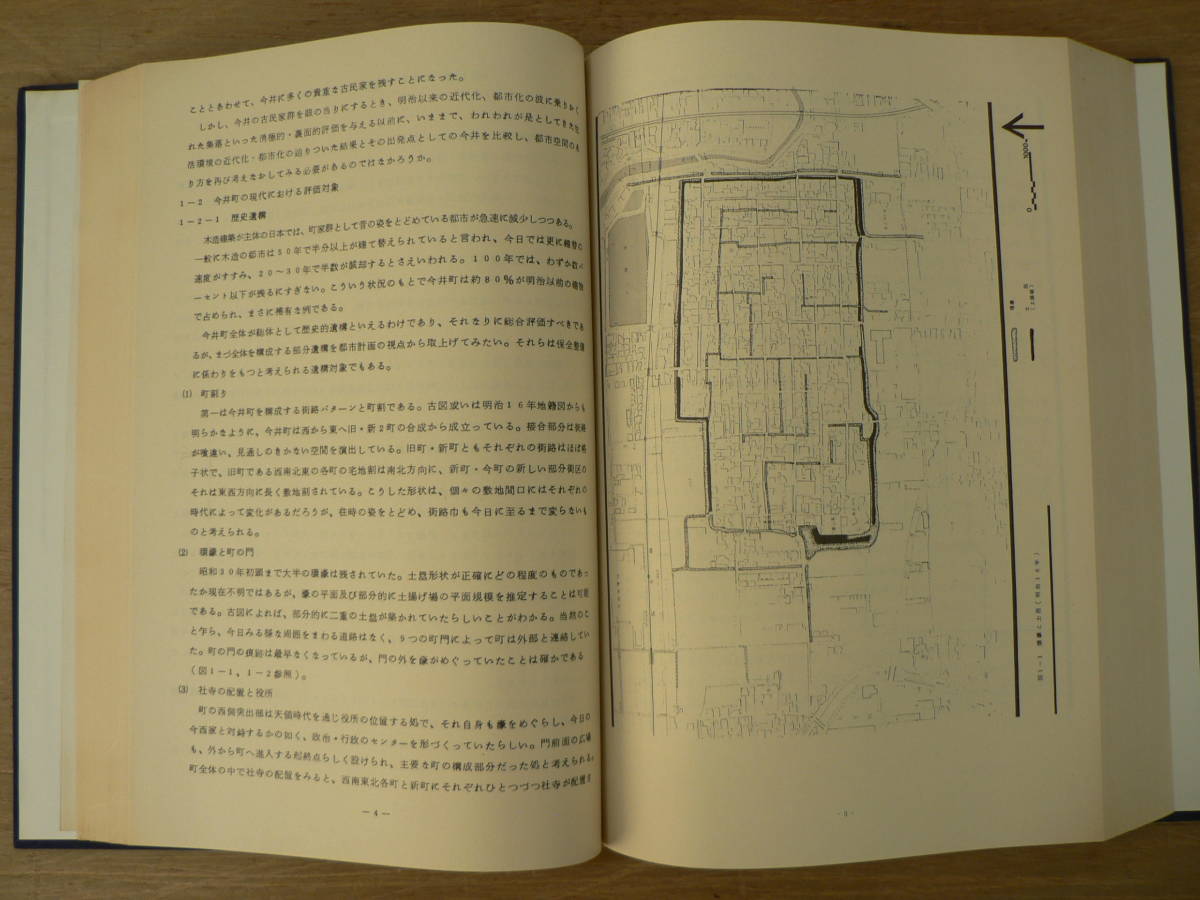 こととあわせて、今井に多くの貴重な古民家を残すことになった。
しかし、今井の古民家群を眼の当りにするとき、明治以来の近代化、都市化の波に乗りおく
れた集落といった消極的・裏面的評価を与える以前に、いままで、われわれが是としてきた生
活環境の近代化・都市化の辿りついた結果とその出発点としての今井を比較し、都市空間のあ
り方を再び考えなおしてみる必要があるのではなかろうか。
1-2 今井町の現代における評価対象
1-2-1 歴史遺構
木造建築が主体の日本では、町家群として昔の姿をとどめている都市が急速に減少しつつある。
一般に木造の都市は50年で半分以上が建て替えられていると言われ、今日では更に建替の
速度がすすみ、20〜30年で半数が滅却するとさえいわれる。100年では、わずか数パ
ーセント以下が残るにすぎない。こういう状況のもとで今井町は約80%が明治以前の建物
で占められ、まさに稀有な例である。
今井町全体が総体として歴史的遺構といえるわけであり、それなりに総合評価すべきであ
るが、まづ全体を構成する部分遺構を都市計画の視点から取上げてみたい。それらは保全整備
に係わりをもつと考えられる遺構対象でもある。
(1) 町割り
第一は今井町を構成する街路パターンと町割である。古図或いは明治16年地籍図からも
明らかなように、今井町は西から東へ旧・新2町の合成から成立っている。接合部分は街路
が喰違い、見通しのきかない空間を演出している。旧町・新町ともそれぞれの街路はほぼ格
子状で、旧町である西南北東の各町の宅地割は南北方向に、新町・今町の新しい部分街区の
それは東西方向に長く敷地割されている。こうした形状は、個々の敷地間口にはそれぞれの
時代によって変化があるだろうが、在時の姿をとどめ、街路巾も今日に至るまで変らないも
のと考えられる。
(2) 環濠と町の門
昭和30年初頭まで大半の環濠は残されていた。土塁形状が正確にどの程度のものであっ
たか現在不明ではあるが、濠の平面及び部分的に土揚げ場の平面規模を推定することは可能
である。古図によれば、部分的に二重の土塁が築かれていたらしいことがわかる。当然のこ
と乍ら、今日みる様な周囲をまわる道路はなく、9つの町門によって町は外部と連絡してい
た。町の門の痕跡は最早なくなっているが、門の外を濠がめぐっていたことは確かである
(図1-1、1-2参照)。
(3) 社寺の配置と役所
町の西側突出部は天領時代を通じ役所の位置する処で、それ自身も濠をめぐらし、今日の
今西家と対峙するかの如く、政治・行政のセンターを形づくっていたらしい。門前面の広場
も、外から町へ進入する起終点らしく設けられ、主要な町の構成部分だった処と考えられる。
町全体の中で社寺の配置をみると、西南東北各町と新町にそれぞれひとつづつ社寺が配置さ
―4―